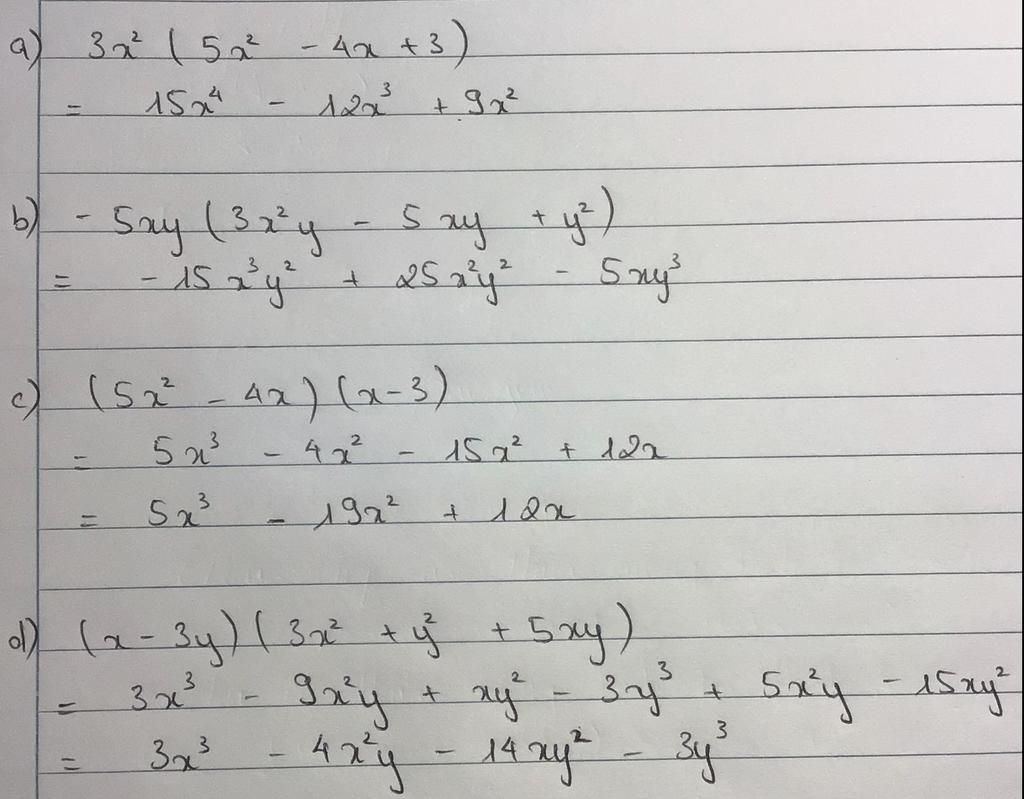 a) 3x² (5x² - 4x + 3)
= 15x⁴ - 12x³ + 9x²
b) - 5xy (3x²y - 5xy + y²)
= - 15x³y² + 25x²y² - 5xy³
c) (5x² - 4x) (x - 3)
= 5x³ - 4x² - 15x² + 12x
= 5x³ - 19x² + 12x
d) (x - 3y) (3x² + y² + 5xy)
= 3x³ - 9x²y + xy² - 3y³ + 5x²y - 15xy²
= 3x³ - 4x²y - 14xy² - 3y³